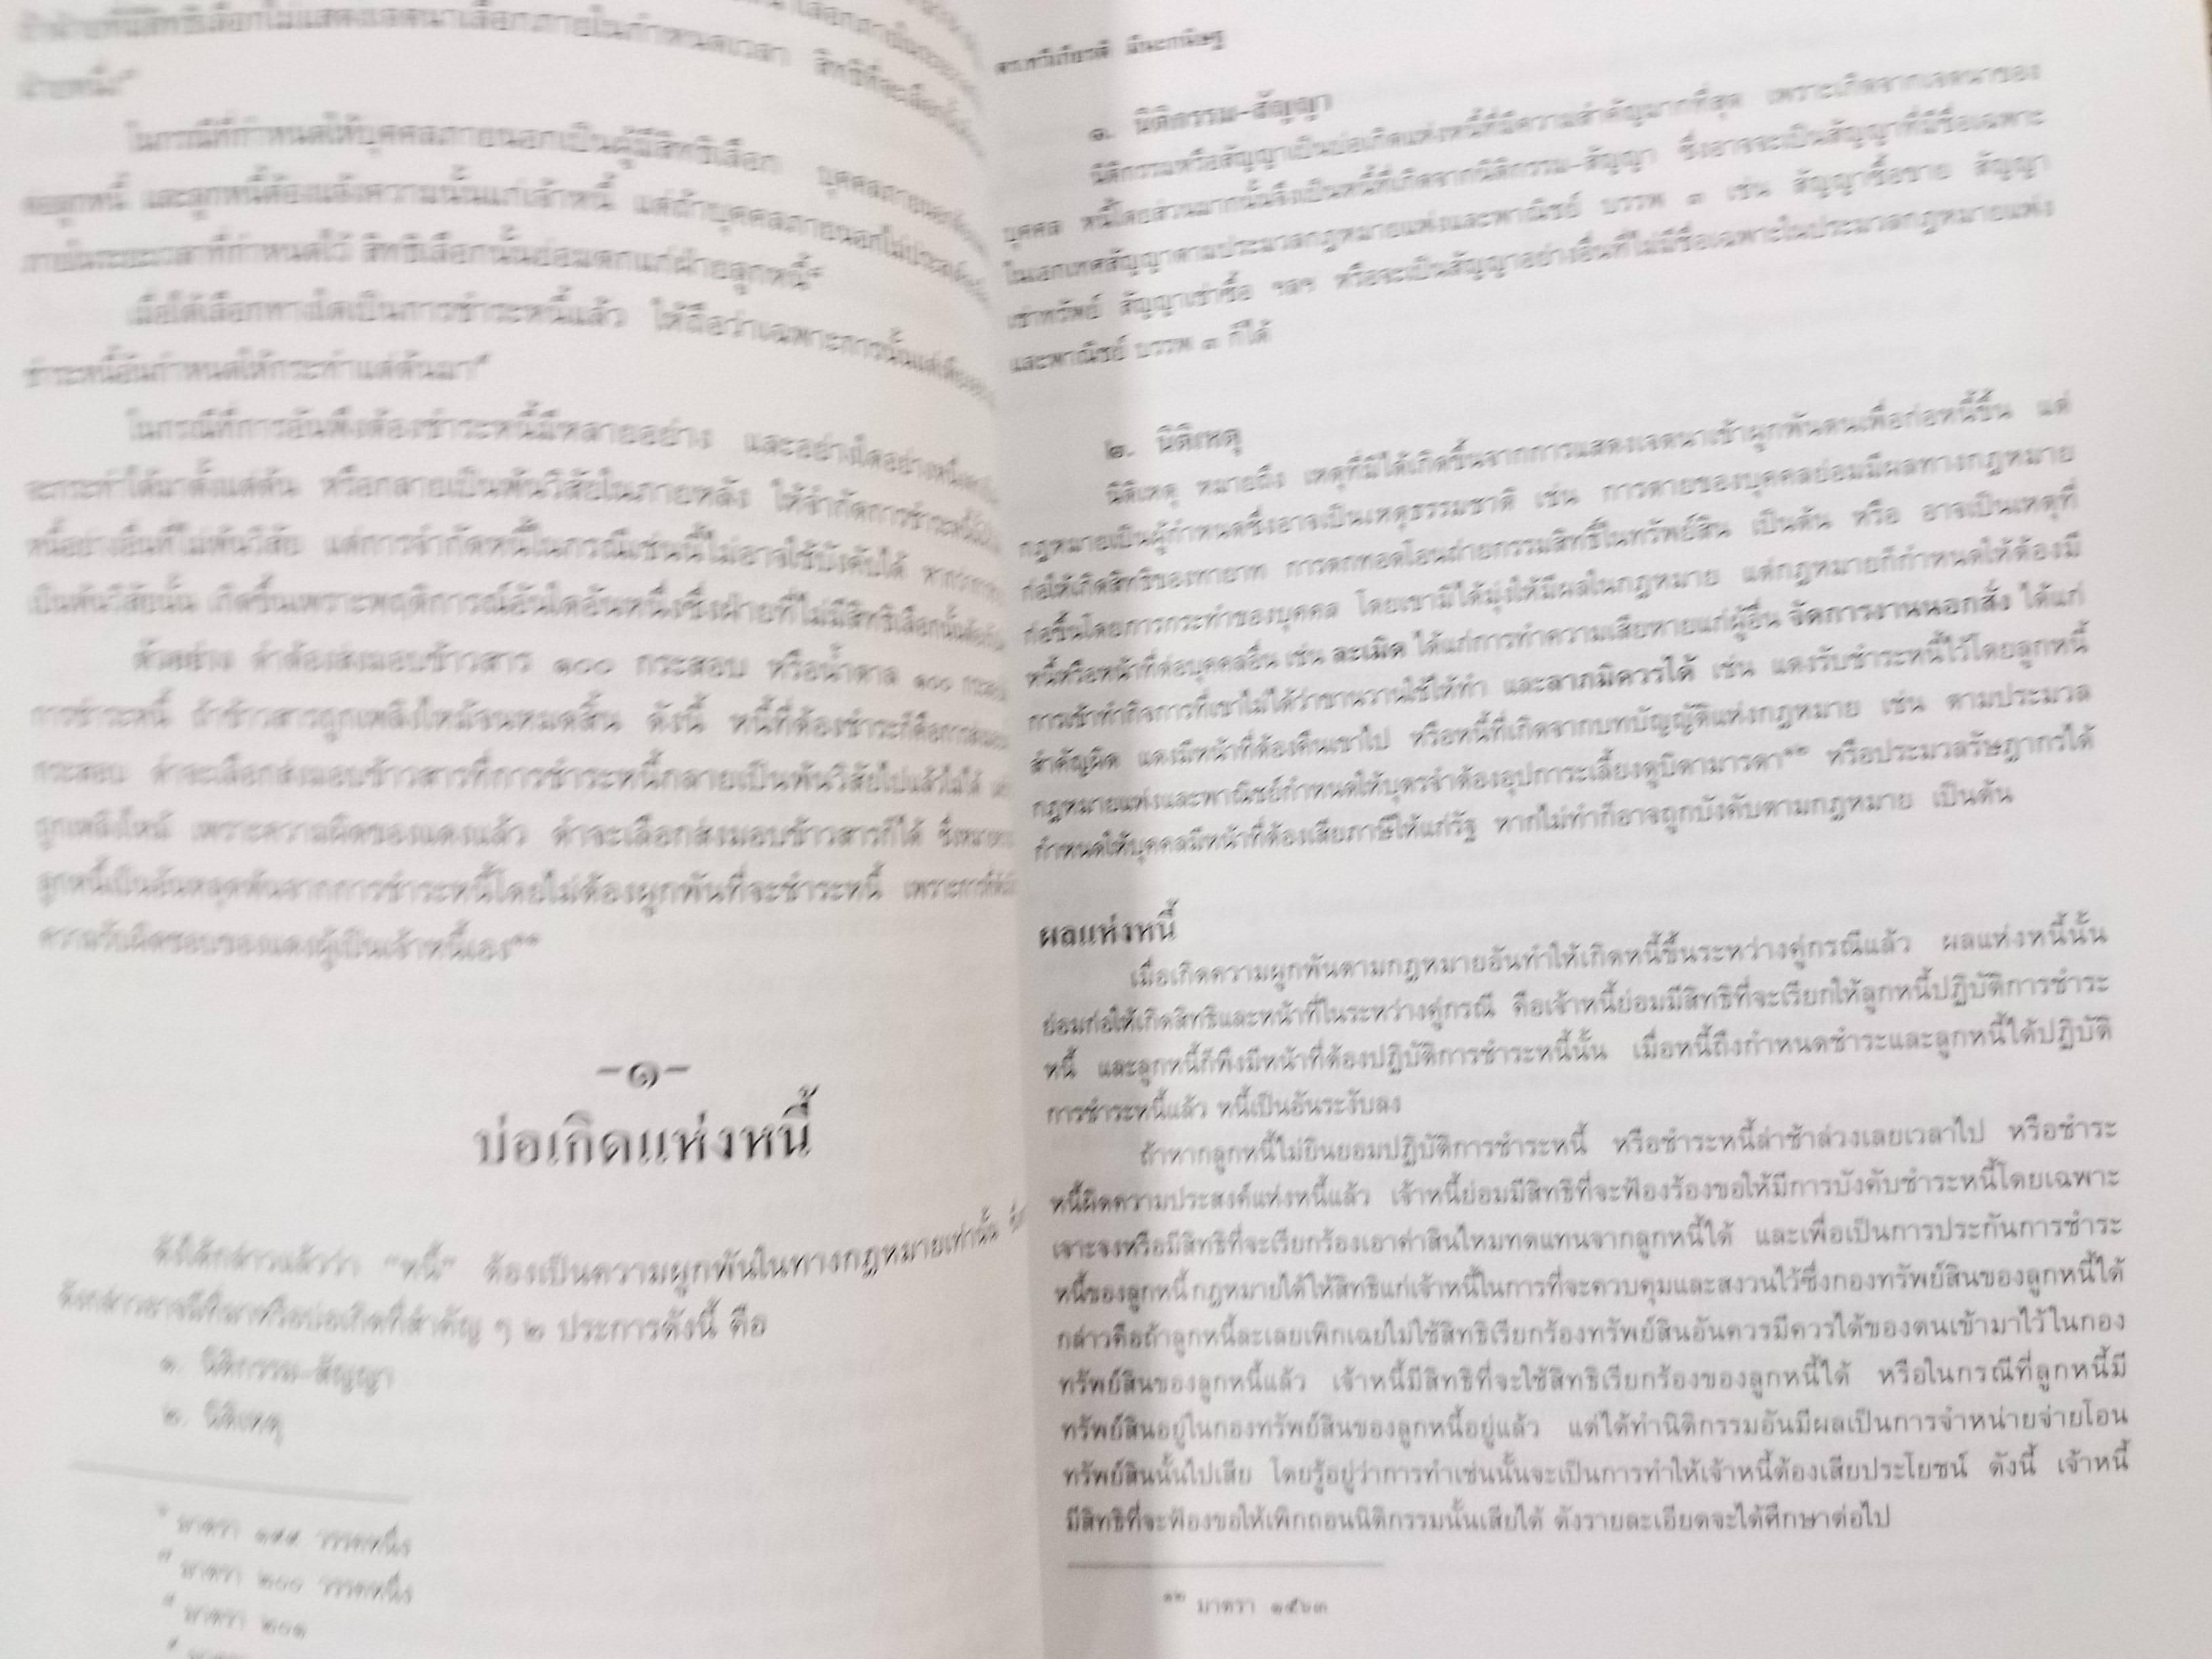 ในกรณีที่กำหนดให้บุคคลภายนอกเป็นผู้มีสิทธิเลือก
ต่อลูกหนี้ และลูกหนี้ต้องแจ้งความนั้นแก่เจ้าหนี้ แต่ถ้าบุคคลภายนอกไม่
ภายในระยะเวลาที่กำหนดไว้ สิทธิเลือกนั้นย่อมตกแก่ฝ่ายลูกหนี้
เมื่อได้เลือกทางใดเป็นการชำระหนี้แล้ว ให้ถือว่าเฉพาะการนั้น
ชำระหนี้อันกำหนดให้กระทำแต่ต้นมา
ในกรณีที่การอันพึงต้องชำระหนี้มีหลายอย่าง และอย่างใดอย่างหนึ่ง
จะกระทำได้มาตั้งแต่ต้น หรือกลายเป็นพ้นวิสัยในภายหลัง ให้จำกัดการชำระหนี้
หนี้อย่างอื่นที่ไม่พ้นวิสัย แต่การจำกัดหนี้ในกรณีเช่นนี้ไม่อาจใช้บังคับได้
เป็นพ้นวิสัยนั้น เกิดขึ้นเพราะพฤติการณ์อันใดอันหนึ่งซึ่งฝ่ายที่ไม่มีสิทธิเลือกนั้น
ตัวอย่าง ดำต้องส่งมอบข้าวสาร ๑๐๐ กระสอบ หรือน้ำตาล ๑๐๐
การชำระหนี้ ถ้าข้าวสารถูกเพลิงไหม้จนหมดสิ้น ดังนี้ หนี้ที่ต้องชำระก็คือการ
กระสอบ ดำจะเลือกส่งมอบข้าวสารที่การชำระหนี้กลายเป็นพ้นวิสัยไปแล้วไม่ได้
ถูกเพลิงไหม้ เพราะความผิดของแดงแล้ว ดำจะเลือกส่งมอบข้าวสารก็ได้
ลูกหนี้เป็นอันหลุดพ้นจากการชำระหนี้โดยไม่ต้องผูกพันที่จะชำระหนี้
ความรับผิดชอบของแดงผู้เป็นเจ้าหนี้เอง
-๑-
บ่อเกิดแห่งหนี้
ดังได้กล่าวแล้วว่า "หนี้" ต้องเป็นความผูกพันในทางกฎหมายเท่านั้น
ดังกล่าวอาจมีที่มาหรือบ่อเกิดที่สำคัญ ๆ ๒ ประการดังนี้ คือ
๑. นิติกรรม-สัญญา
๒. นิติเหตุ
มาตรา ๑๙๙ วรรคหนึ่ง
มาตรา ๒๐๐ วรรคหนึ่ง
มาตรา ๒๐๑
๑. นิติกรรม-สัญญา
นิติกรรมหรือสัญญาเป็นบ่อเกิดแห่งหนี้ที่มีความสำคัญมากที่สุด เพราะเกิดจากเจตนาของ
บุคคล หนี้โดยส่วนมากนั้นจึงเป็นหนี้ที่เกิดจากนิติกรรม-สัญญา ซึ่งอาจจะเป็นสัญญาที่มีชื่อเฉพาะ
ในเอกเทศสัญญาตามประมวลกฎหมายแพ่งและพาณิชย์ บรรพ ๓ เช่น สัญญาซื้อขาย สัญญา
เช่าทรัพย์ สัญญาเช่าซื้อ ฯลฯ หรือจะเป็นสัญญาอย่างอื่นที่ไม่มีชื่อเฉพาะในประมวลกฎหมายแพ่ง
และพาณิชย์ บรรพ ๓ ก็ได้
๒. นิติเหตุ
นิติเหตุ หมายถึง เหตุที่มิได้เกิดขึ้นจากการแสดงเจตนาเข้าผูกพันตนเพื่อก่อหนี้ขึ้น แต่
กฎหมายเป็นผู้กำหนดซึ่งอาจเป็นเหตุธรรมชาติ เช่น การตายของบุคคลย่อมมีผลทางกฎหมาย
ก่อให้เกิดสิทธิของทายาท การตกทอดโอนถ่ายกรรมสิทธิ์ในทรัพย์สิน เป็นต้น หรือ อาจเป็นเหตุที่
ก่อขึ้นโดยการกระทำของบุคคล โดยเขามิได้มุ่งให้มีผลในกฎหมาย แต่กฎหมายก็กำหนดให้ต้องมี
หนี้หรือหน้าที่ต่อบุคคลอื่น เช่น ละเมิด ได้แก่การทำความเสียหายแก่ผู้อื่น จัดการงานนอกสั่ง ได้แก่
การเข้าทำกิจการที่เขาไม่ได้ว่าขานวานใช้ให้ทำ และลาภมิควรได้ เช่น แดงรับชำระหนี้ไว้โดยลูกหนี้
สำคัญผิด แดงมีหน้าที่ต้องคืนเขาไป หรือหนี้ที่เกิดจากบทบัญญัติแห่งกฎหมาย เช่น ตามประมวล
กฎหมายแพ่งและพาณิชย์กำหนดให้บุตรจำต้องอุปการะเลี้ยงดูบิดามารดา๑๒ หรือประมวลรัษฎากรได้
กำหนดให้บุคคลมีหน้าที่ต้องเสียภาษีให้แก่รัฐ หากไม่ทำก็อาจถูกบังคับตามกฎหมาย เป็นต้น
ผลแห่งหนี้
เมื่อเกิดความผูกพันตามกฎหมายอันทำให้เกิดหนี้ขึ้นระหว่างคู่กรณีแล้ว ผลแห่งหนี้นั้น
ย่อมก่อให้เกิดสิทธิและหน้าที่ในระหว่างคู่กรณี คือเจ้าหนี้ย่อมมีสิทธิที่จะเรียกให้ลูกหนี้ปฏิบัติการชำระ
หนี้ และลูกหนี้ก็พึงมีหน้าที่ต้องปฏิบัติการชำระหนี้นั้น เมื่อหนี้ถึงกำหนดชำระและลูกหนี้ได้ปฏิบัติ
การชำระหนี้แล้ว หนี้เป็นอันระงับลง
ถ้าหากลูกหนี้ไม่ยินยอมปฏิบัติการชำระหนี้ หรือชำระหนี้ล่าช้าล่วงเลยเวลาไป หรือชำระ
หนี้ผิดความประสงค์แห่งหนี้แล้ว เจ้าหนี้ย่อมมีสิทธิที่จะฟ้องร้องขอให้มีการบังคับชำระหนี้โดยเฉพาะ
เจาะจงหรือมีสิทธิที่จะเรียกร้องเอาค่าสินไหมทดแทนจากลูกหนี้ได้ และเพื่อเป็นการประกันการชำระ
หนี้ของลูกหนี้ กฎหมายได้ให้สิทธิแก่เจ้าหนี้ในการที่จะควบคุมและสงวนไว้ซึ่งกองทรัพย์สินของลูกหนี้ได้
กล่าวคือถ้าลูกหนี้ละเลยเพิกเฉยไม่ใช้สิทธิเรียกร้องทรัพย์สินอันควรมีควรได้ของตนเข้ามาไว้ในกอง
ทรัพย์สินของลูกหนี้แล้ว เจ้าหนี้มีสิทธิที่จะใช้สิทธิเรียกร้องของลูกหนี้ได้ หรือในกรณีที่ลูกหนี้มี
ทรัพย์สินอยู่ในกองทรัพย์สินของลูกหนี้อยู่แล้ว แต่ได้ทำนิติกรรมอันมีผลเป็นการจำหน่ายจ่ายโอน
ทรัพย์สินนั้นไปเสีย โดยรู้อยู่ว่าการทำเช่นนั้นจะเป็นการทำให้เจ้าหนี้ต้องเสียประโยชน์ ดังนี้ เจ้าหนี้
มีสิทธิที่จะฟ้องขอให้เพิกถอนนิติกรรมนั้นเสียได้ ดังรายละเอียดจะได้ศึกษาต่อไป
๑๒ มาตรา ๑๕๖๓